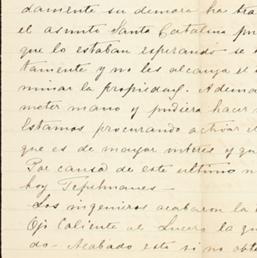 damente su demora hac tra
el asunto Santa Catalina pu
que lo estaban esperando - se
tamente y no les alcanza el
minar la propiedad. Adema
meter mano y pudiera hacer
Estamos procurando activar el
que es de mayor interes y qu
Por causa de este ultimo n
hoy Tepehuanes -
Los ingenieros acabaron la
Ojo Caliente al Lucero la qu
do - Acabado este si no obte